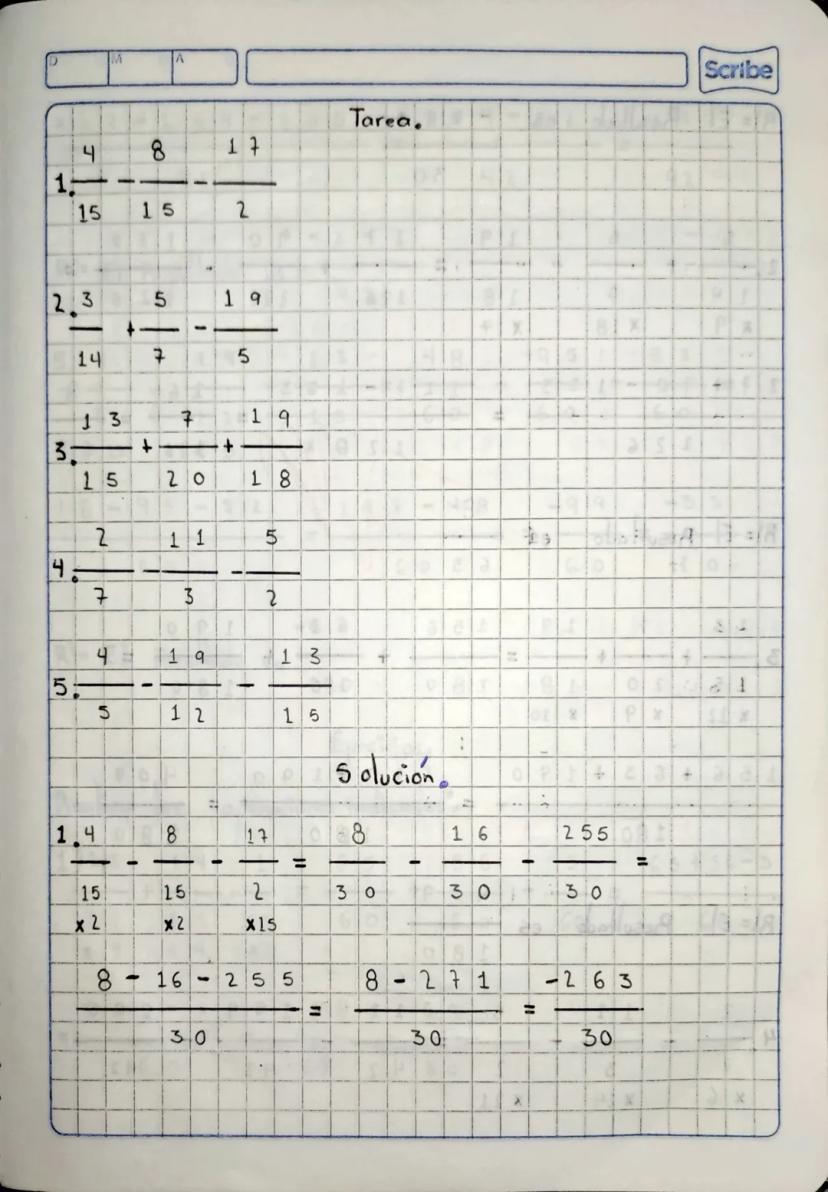 D M A Scribe
Tarea.
1. 4/15 - 8/15 - 17/2
2. 3/14 + 5/7 - 19/5
3. 13/15 + 7/20 + 19/18
4. 2/7 - 11/3 - 5/2
5. 4/5 - 19/12 - 13/15
Solución.
1. 4/15 - 8/15 - 17/2 = 8/30 - 16/30 - 255/30 =
x2 x2 x15
8 - 16 - 255/30 = 8 - 271/30 = -263/30